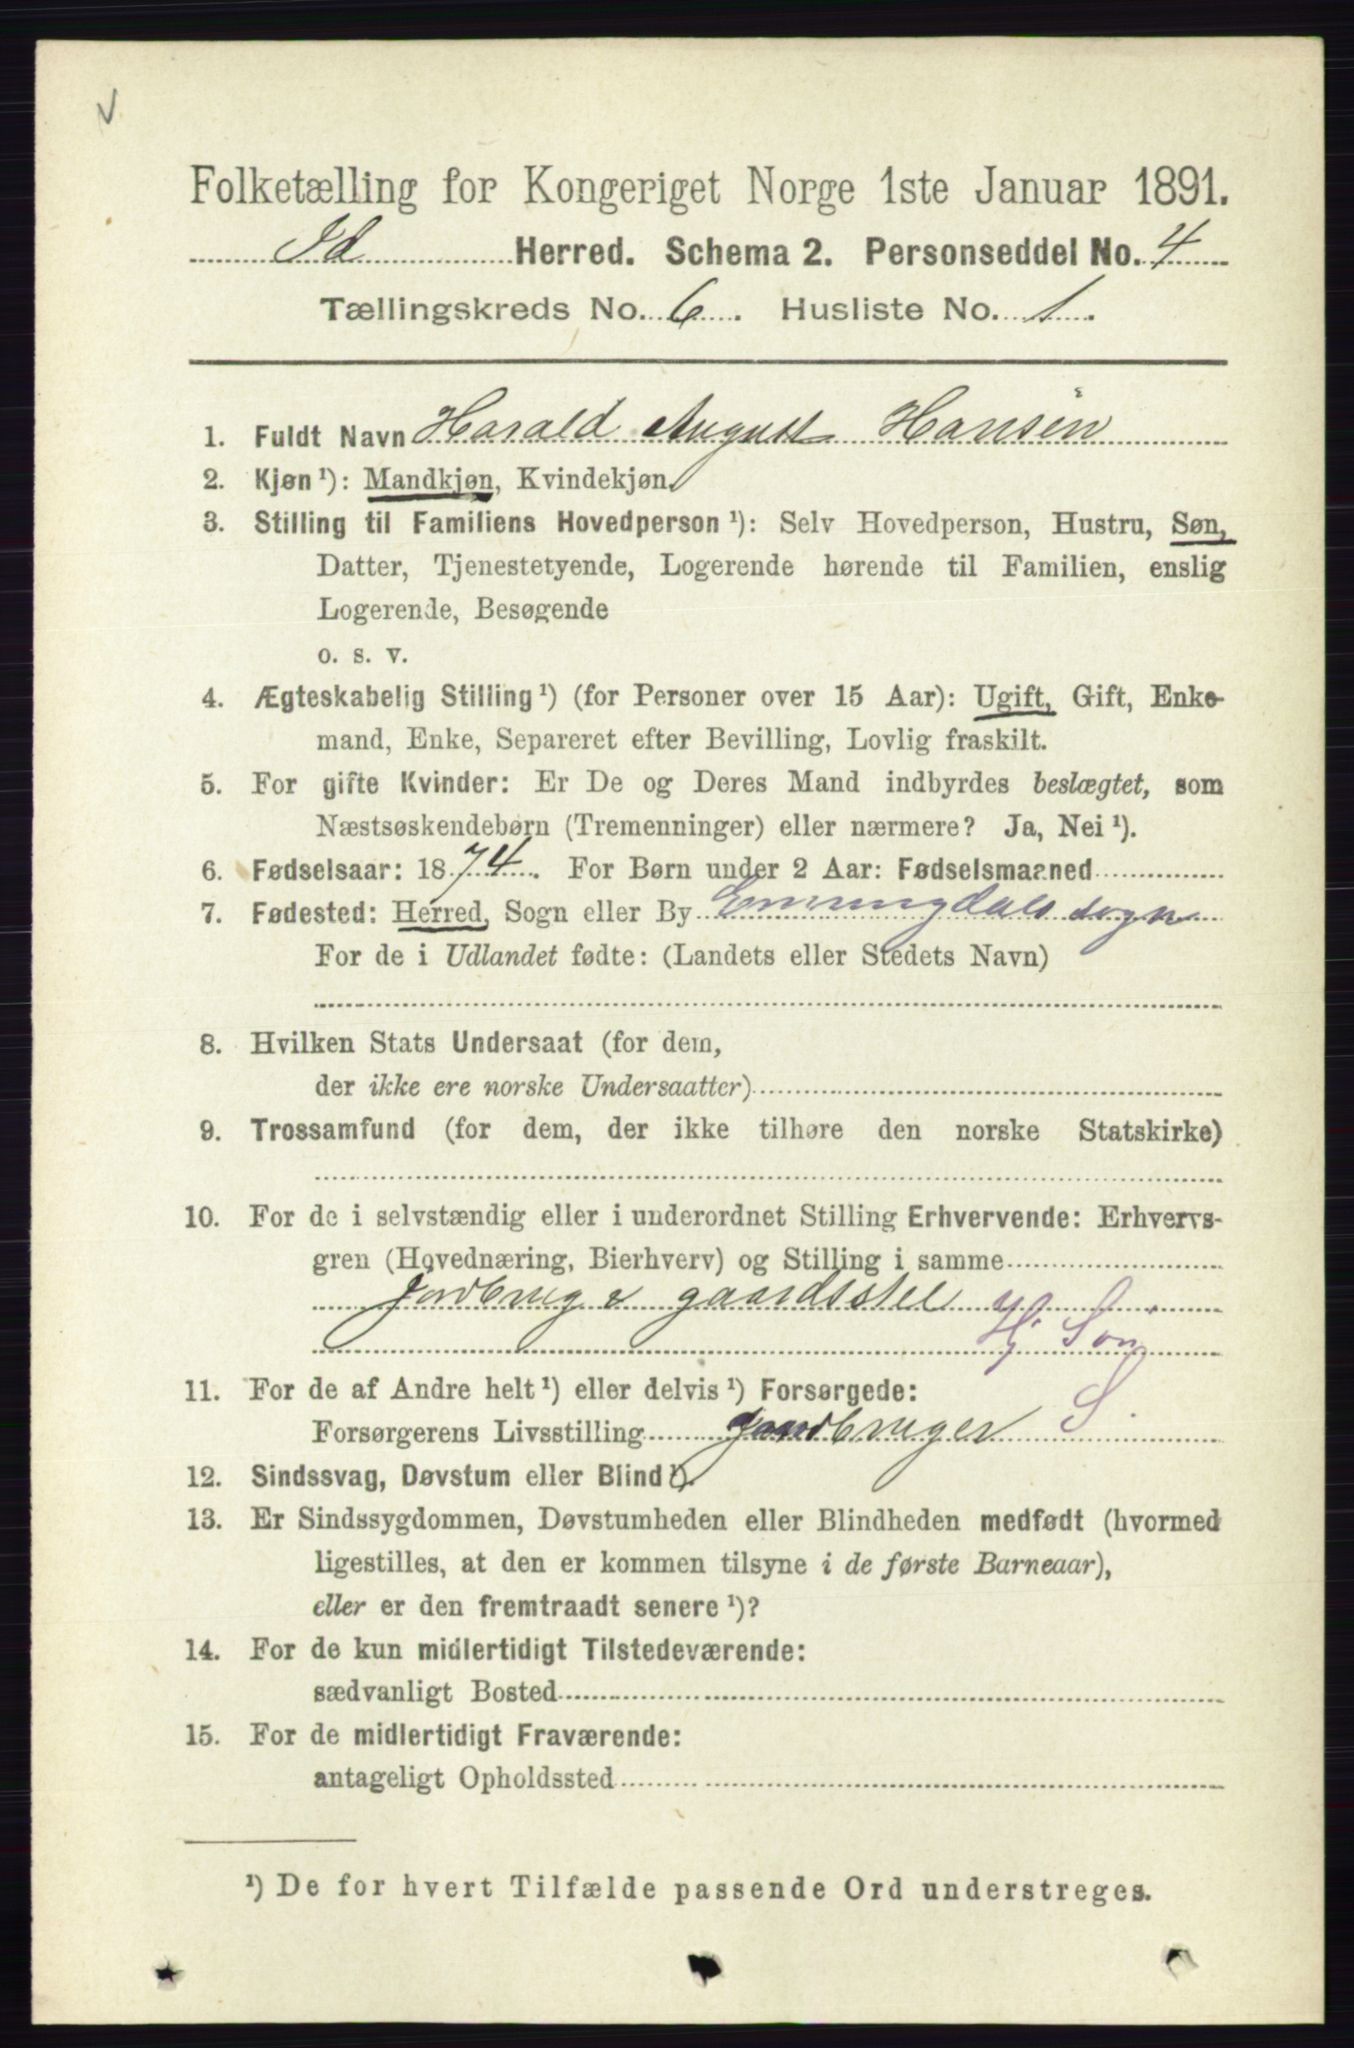 V
Folketælling for Kongeriget Norge 1ste Januar 1891.
Id Herred. Schema 2. Personseddel No. 4
Tællingskreds No. 6. Husliste No. 1.
1. Fuldt Navn Harald August Hansen
2. Kjøn¹): Mandkjøn, Kvindekjøn.
3. Stilling til Familiens Hovedperson¹): Selv Hovedperson, Hustru, Søn,
Datter, Tjenestetyende, Logerende hørende til Familien, enslig
Logerende, Besøgende
o. s. v.
4. Ægteskabelig Stilling¹) (for Personer over 15 Aar): Ugift, Gift, Enke-
mand, Enke, Separeret efter Bevilling, Lovlig fraskilt.
5. For gifte Kvinder: Er De og Deres Mand indbyrdes beslægtet, som
Næstsøskendebørn (Tremenninger) eller nærmere? Ja, Nei¹).
6. Fødselsaar: 1874. For Børn under 2 Aar: Fødselsmaaned
7. Fødested: Herred, Sogn eller By Enningdals sogn
For de i Udlandet fødte: (Landets eller Stedets Navn)
8. Hvilken Stats Undersaat (for dem,
der ikke ere norske Undersaatter)
9. Trossamfund (for dem, der ikke tilhøre den norske Statskirke)
10. For de i selvstændig eller i underordnet Stilling Erhvervende: Erhvervs-
gren (Hovednæring, Bierhverv) og Stilling i samme
Jordbrug & gaardsstel
Hj Søn
11. For de af Andre helt¹) eller delvis¹) Forsørgede:
Forsørgerens Livsstilling Jordbruger S.
12. Sindssvag, Døvstum eller Blind¹).
13. Er Sindssygdommen, Døvstumheden eller Blindheden medfødt (hvormed
ligestilles, at den er kommen tilsyne i de første Barneaar),
eller er den fremtraadt senere¹)?
14. For de kun midlertidigt Tilstedeværende:
sædvanligt Bosted
15. For de midlertidigt Fraværende:
antageligt Opholdssted
¹) De for hvert Tilfælde passende Ord understreges.